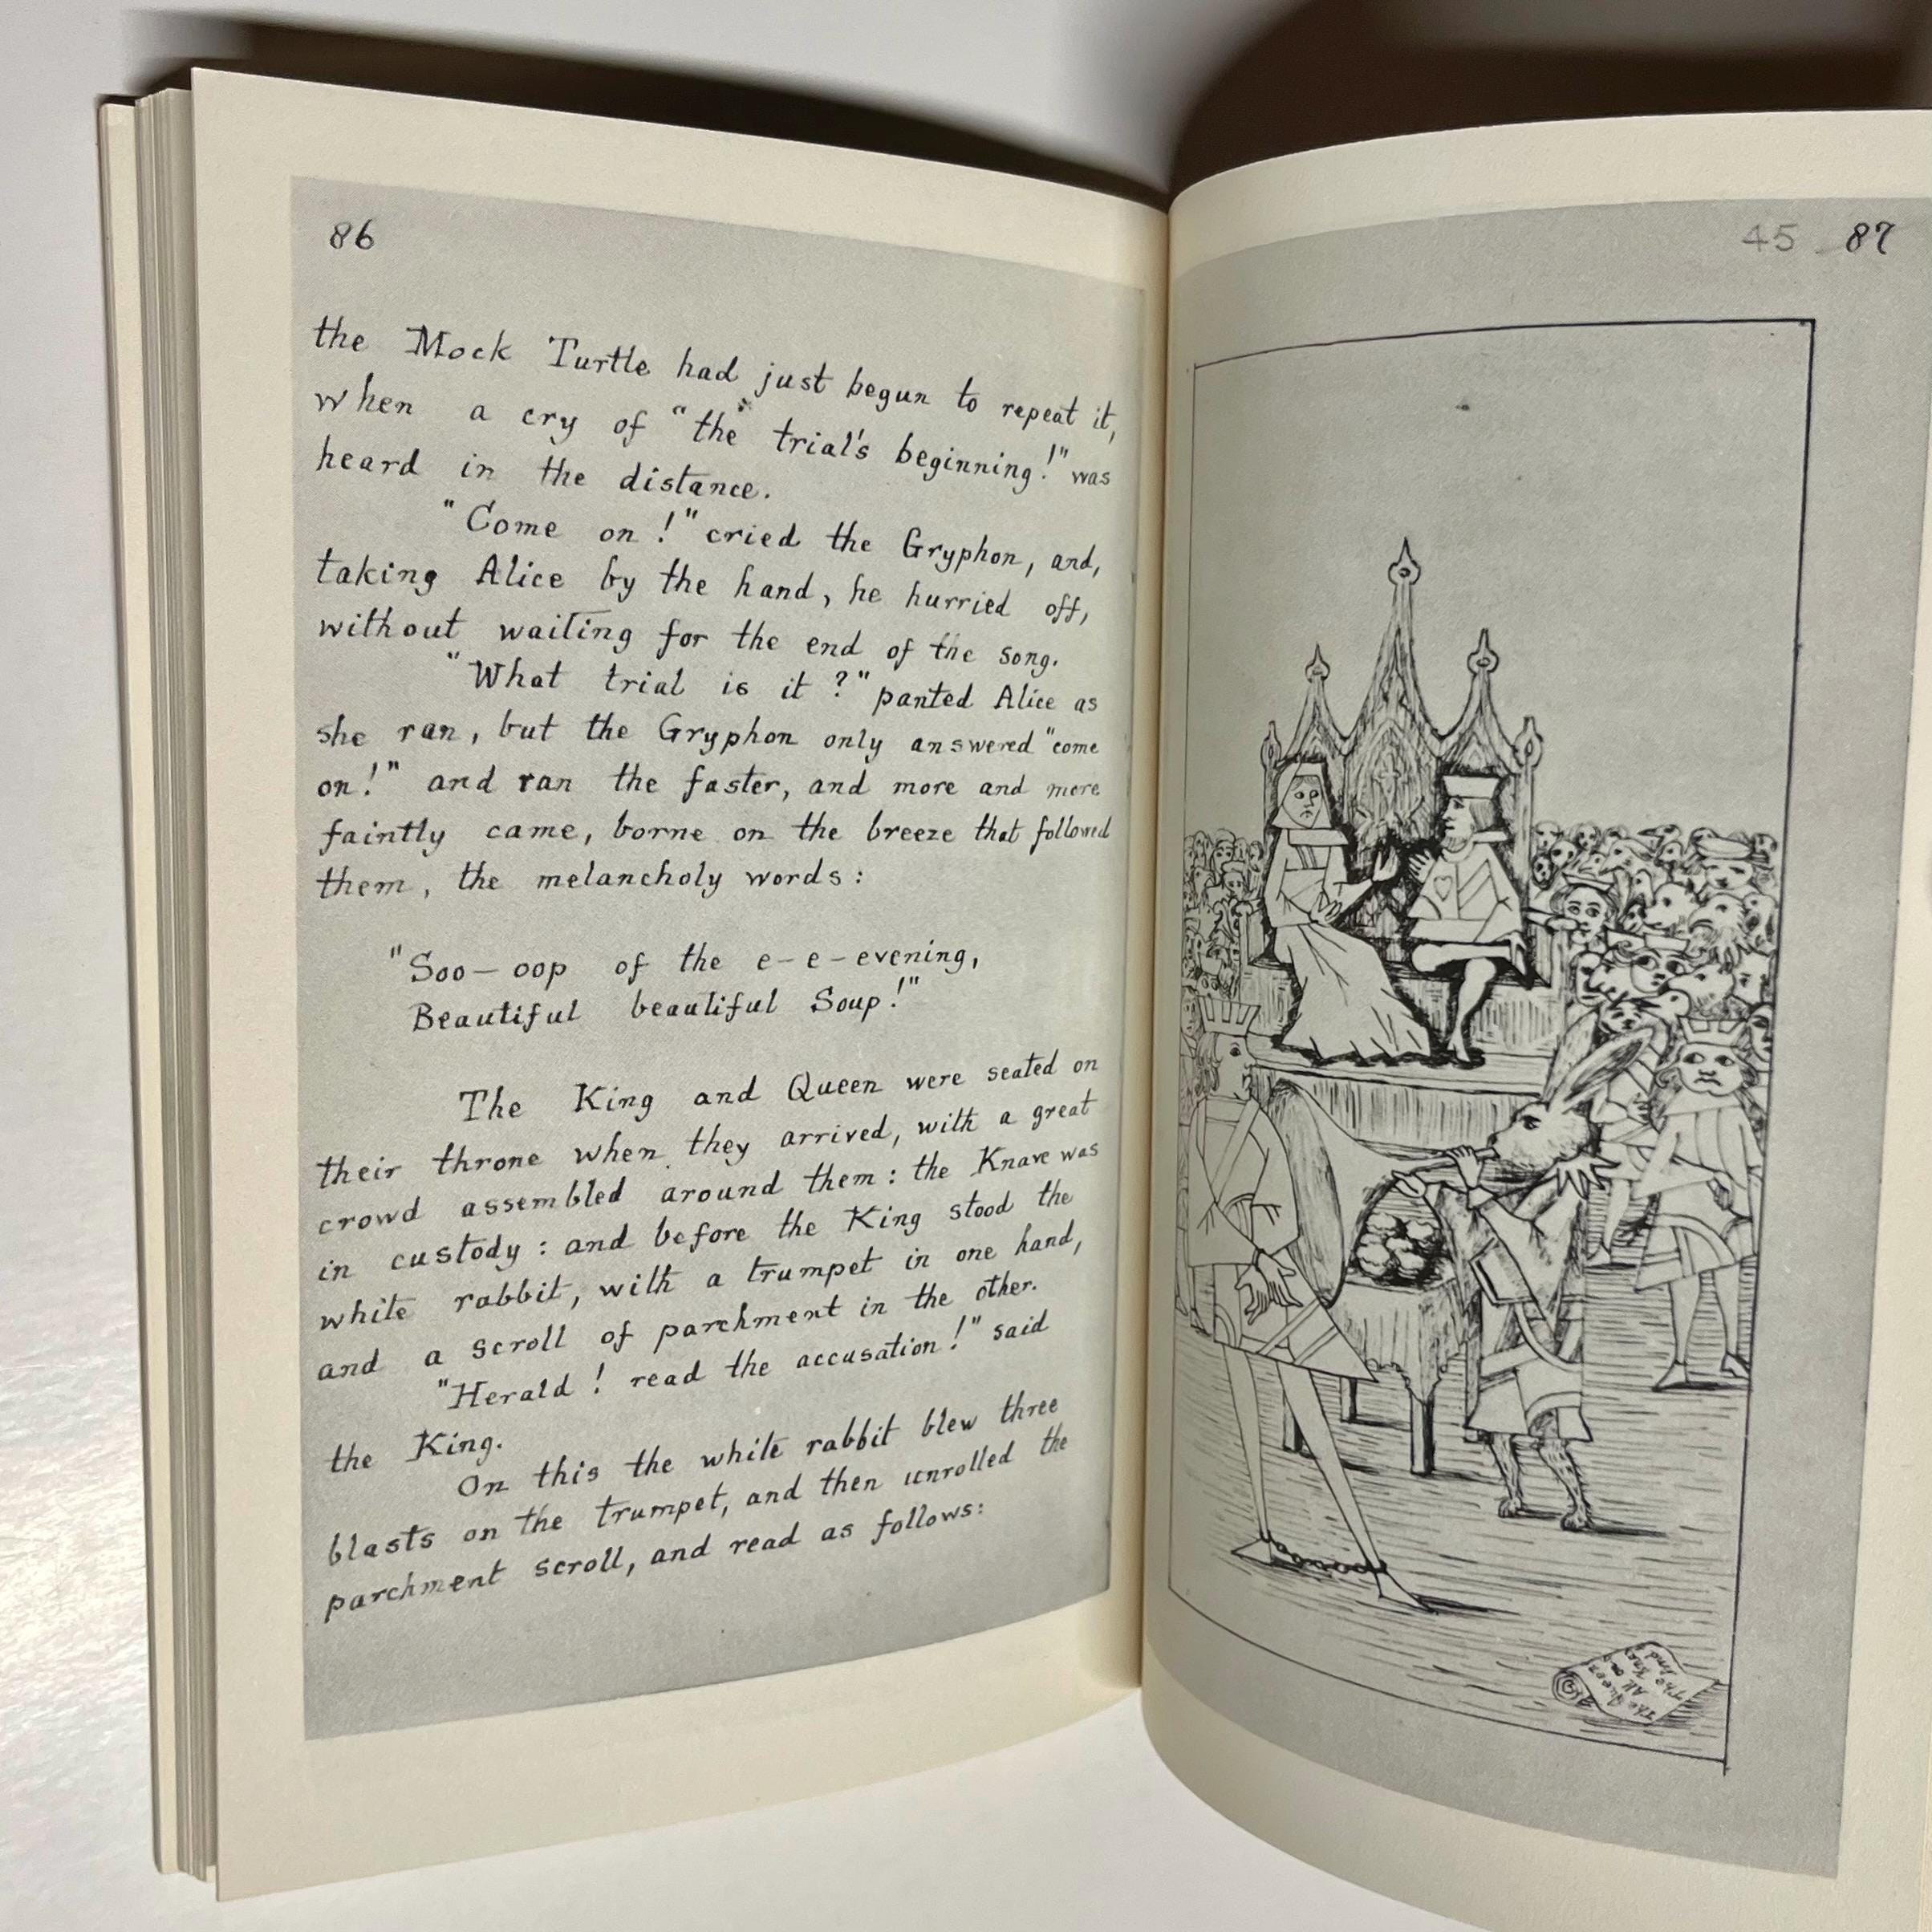 86
the Mock Turtle had just begun to repeat it,
when a cry of "the trial's beginning!" was
heard in the distance.
"Come on!" cried the Gryphon, and,
taking Alice by the hand, he hurried off,
without waiting for the end of the song.
"What trial is it?" panted Alice as
she ran, but the Gryphon only answered "come
on!" and ran the faster, and more and more
faintly came, borne on the breeze that followed
them, the melancholy words:
"Soo—oop of the e—e—evening,
Beautiful beautiful Soup!"
The King and Queen were seated on
their throne when they arrived, with a great
crowd assembled around them: the Knave was
in custody: and before the King stood the
white rabbit, with a trumpet in one hand,
and a scroll of parchment in the other.
"Herald! read the accusation!" said
the King.
On this the white rabbit blew three
blasts on the trumpet, and then unrolled the
parchment scroll, and read as follows:
45 87
The Queen
All on
The Knav
And